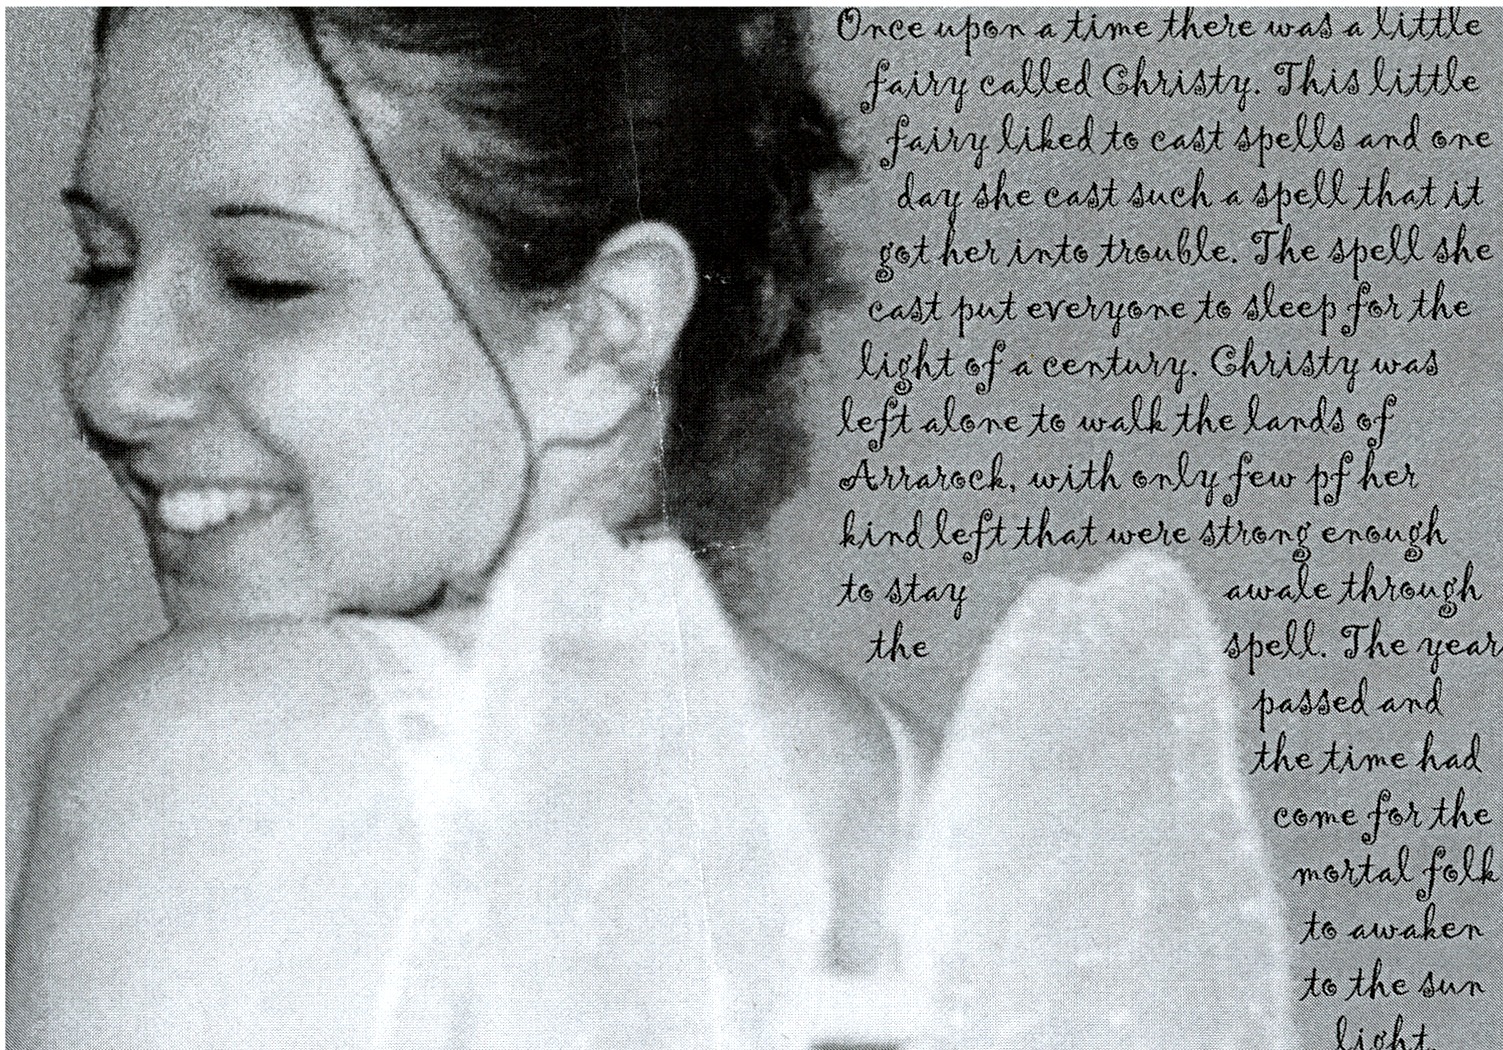 Once upon a time there was a little
fairy called Christy. This little
fairy liked to cast spells and one
day she cast such a spell that it
got her into trouble. The spell she
cast put everyone to sleep for the
light of a century. Christy was
left alone to walk the lands of
Arrarock, with only few pf her
kind left that were strong enough
to stay awale through
the spell. The year
passed and
the time had
come for the
mortal folk
to awaken
to the sun
light.